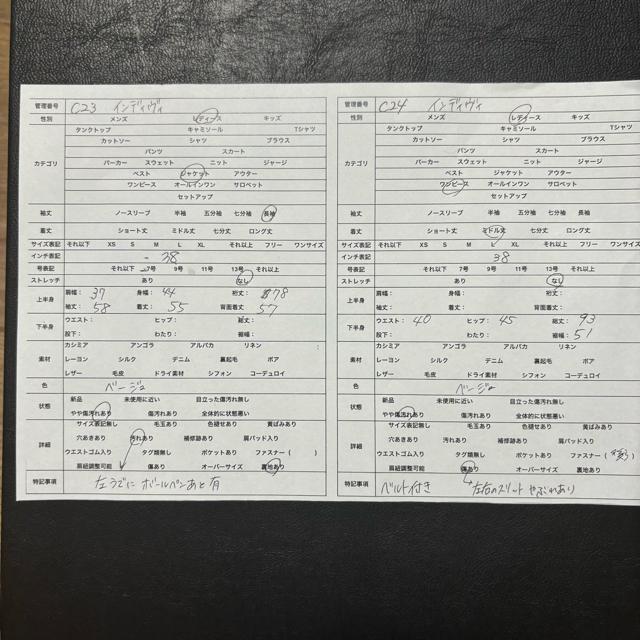 管理番号 C23 インディヴィ
性別 メンズ レディース キッズ
カテゴリ
タンクトップ キャミソール Tシャツ
カットソー シャツ ブラウス
パンツ スカート
パーカー スウェット ニット ジャージ
ベスト ジャケット アウター
ワンピース オールインワン サロペット
セットアップ
袖丈 ノースリーブ 半袖 五分袖 七分袖 長袖
着丈 ショート丈 ミドル丈 七分丈 ロング丈
サイズ表記 それ以下 XS S M L XL それ以上 フリー ワンサイズ
インチ表記 38
号表記 それ以下 7号 9号 11号 13号 それ以上
ストレッチ あり なし
上半身 肩幅: 37 身幅: 44 裄丈: 78
袖丈: 58 着丈: 55 背面着丈: 57
下半身 ウエスト: ヒップ: 総丈:
股下: わたり: 裾幅:
素材
カシミア アンゴラ アルパカ リネン
レーヨン シルク デニム 裏起毛 ボア
レザー 毛皮 ドライ素材 シフォン コーデュロイ
色 ベージュ
状態 新品 未使用に近い 目立った傷汚れ無し
やや傷汚れあり 傷汚れあり 全体的に状態悪い
詳細
サイズ表記無し 毛玉あり 色褪せあり 黄ばみあり
穴あきあり 汚れあり 補修跡あり 肩パッド入り
ウエストゴム入り タグ類無し ポケットあり ファスナー( )
肩紐調整可能 傷あり オーバーサイズ 裏地あり
特記事項 左うでに ボールペンあと有
管理番号 C24 インディヴィ
性別 メンズ レディース キッズ
カテゴリ
タンクトップ キャミソール Tシャツ
カットソー シャツ ブラウス
パンツ スカート
パーカー スウェット ニット ジャージ
ベスト ジャケット アウター
ワンピース オールインワン サロペット
セットアップ
袖丈 ノースリーブ 半袖 五分袖 七分袖 長袖
着丈 ショート丈 ミドル丈 七分丈 ロング丈
サイズ表記 それ以下 XS S M L XL それ以上 フリー ワン
インチ表記 38
号表記 それ以下 7号 9号 11号 13号 それ以上
ストレッチ あり なし
上半身 肩幅: 身幅: 裄丈:
袖丈: 着丈: 背面着丈:
下半身 ウエスト: 40 ヒップ: 45 総丈: 93
股下: わたり: 裾幅: 51
素材
カシミア アンゴラ アルパカ リネン
レーヨン シルク デニム 裏起毛 ボア
レザー 毛皮 ドライ素材 シフォン コーデュロイ
色 ベージュ
状態 新品 未使用に近い 目立った傷汚れ無し
やや傷汚れあり 傷汚れあり 全体的に状態悪い
詳細
サイズ表記無し 毛玉あり 色褪せあり 黄ばみあり
穴あきあり 汚れあり 補修跡あり 肩パッド入り
ウエストゴム入り タグ類無し ポケットあり ファスナー(
肩紐調整可能 傷あり オーバーサイズ 裏地あり
特記事項 ベルト付き 左右のスリット やぶれあり